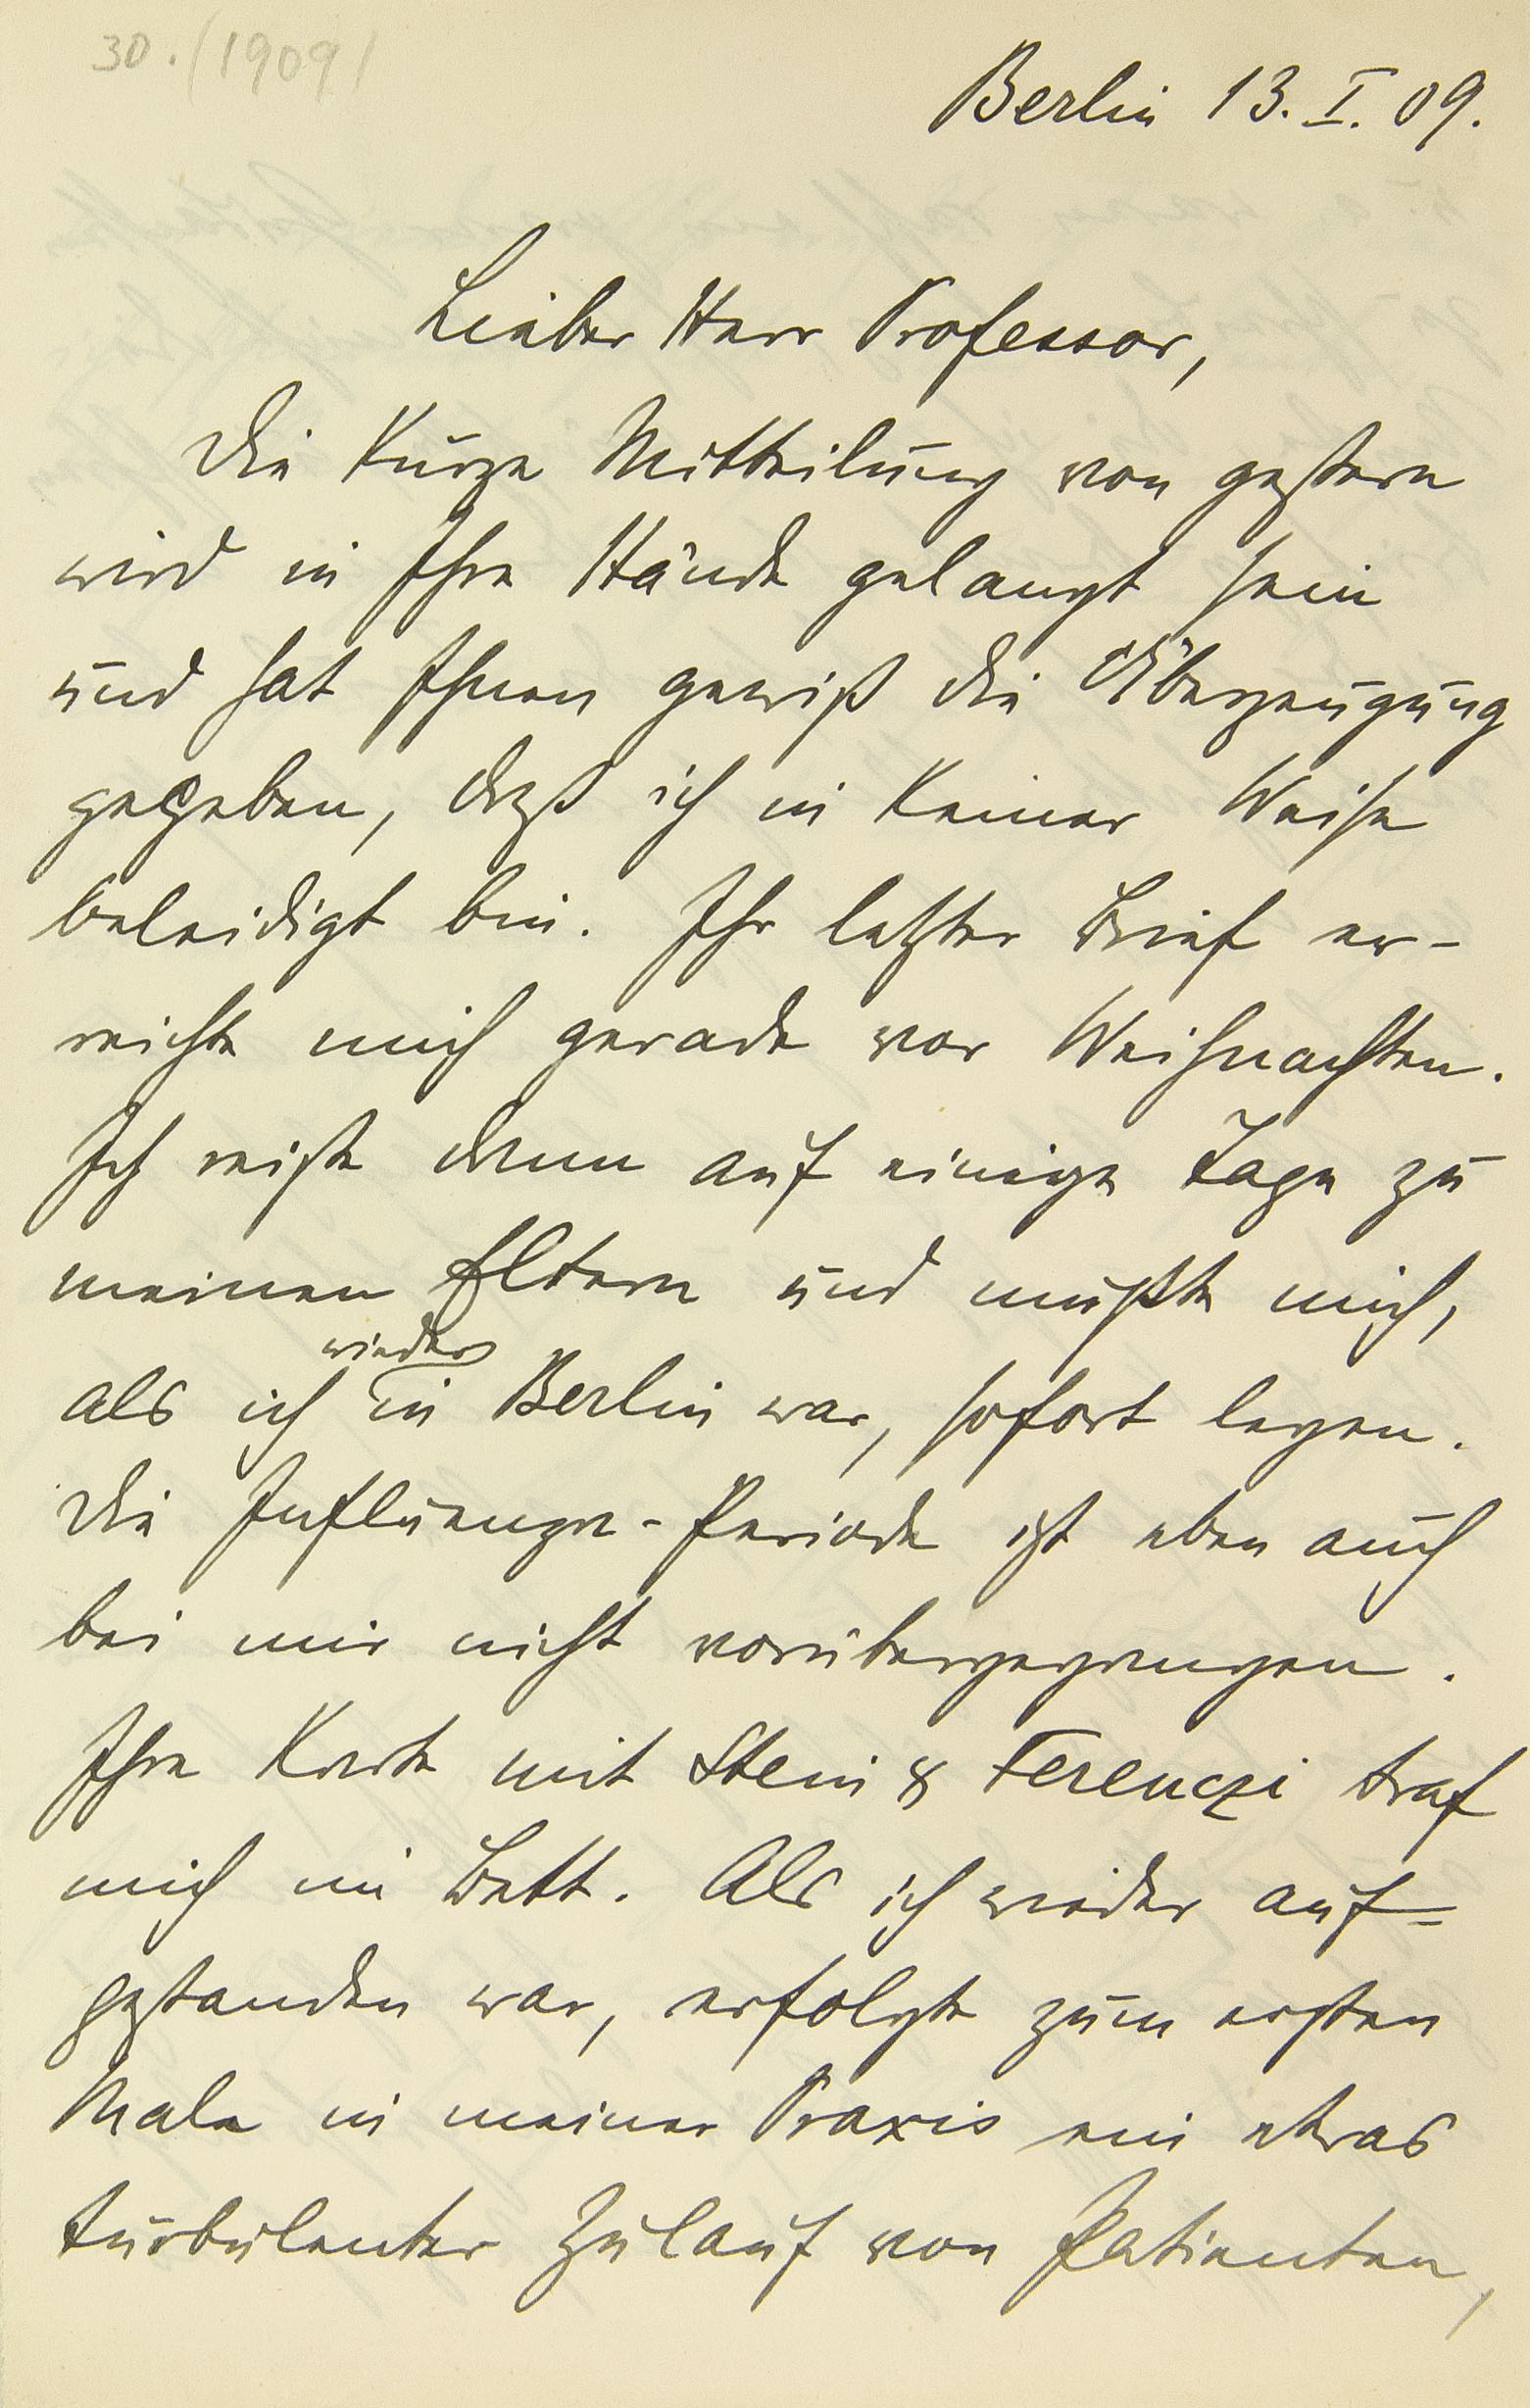 30. (1909)
Berlin 13. I. 09.
Lieber Herr Professor,
Die kurze Mitteilung von gestern
wird in Ihre Hände gelangt sein
und hat Ihnen gewiß die Überzeugung
gegeben, daß ich in keiner Weise
beleidigt bin. Ihr letzter Brief er-
reichte mich gerade vor Weihnachten.
Ich reiste dann auf einige Tage zu
meinen Eltern und mußte mich,
wieder
als ich in Berlin war, sofort legen.
Die Influenza-Periode ist eben auch
bei mir nicht vorübergegangen.
Ihre Karte mit Stein & Ferenczi traf
mich im Bett. Als ich wieder auf=
gestanden war, erfolgte zum ersten
Male in meiner Praxis ein etwas
turbulenter Zulauf von Patienten,